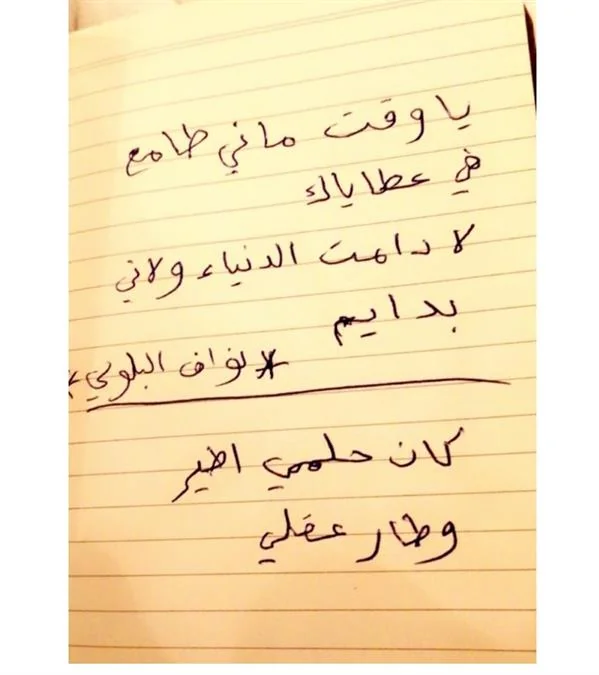 يا وقت ماني طامع
في عطاياك
لا دامت الدنياء ولاني
بدايم
* نواف البلوي *
كان حلمي اطير
وطار عقلي